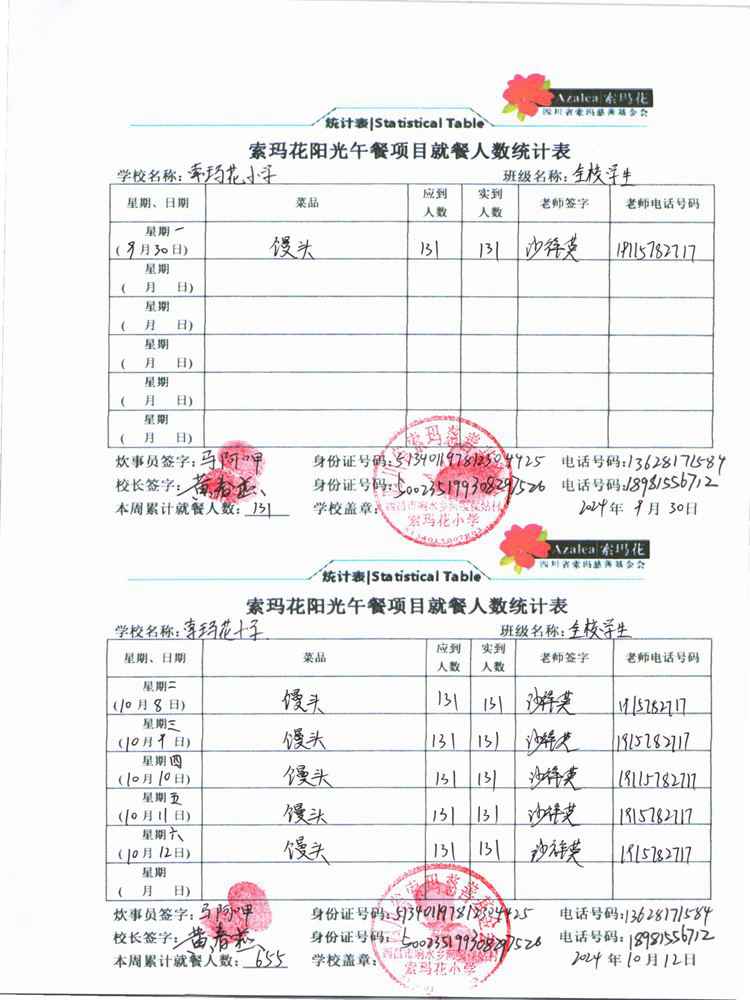 Azalea 索玛花
四川省索玛慈善基金会
统计表|Statistical Table
索玛花阳光午餐项目就餐人数统计表
学校名称:索玛花小学 班级名称:全校学生
星期、日期 菜品 应到人数 实到人数 老师签字 老师电话号码
星期一 (9月30日) 馒头 131 131
星期 ( 月 日)
星期 ( 月 日)
星期 ( 月 日)
星期 ( 月 日)
星期 ( 月 日)
炊事员签字:马阿呷 身份证号码: 电话号码:13628171584
校长签字:黄春 身份证号码: 电话号码:18981556712
本周累计就餐人数:131 学校盖章: 2024年9月30日
索玛花小学
Azalea 索玛花
四川省索玛慈善基金会
统计表|Statistical Table
索玛花阳光午餐项目就餐人数统计表
学校名称:索玛花小学 班级名称:全校学生
星期、日期 菜品 应到人数 实到人数 老师签字 老师电话号码
星期二 (10月8日) 馒头 131 131
星期三 (10月9日) 馒头 131 131
星期四 (10月10日) 馒头 131 131
星期五 (10月11日) 馒头 131 131
星期六 (10月12日) 馒头 131 131
星期 ( 月 日)
炊事员签字:马阿呷 身份证号码: 电话号码:13628171584
校长签字:黄春 身份证号码: 电话号码:18981556712
本周累计就餐人数:655 学校盖章: 2024年10月12日
索玛花小学